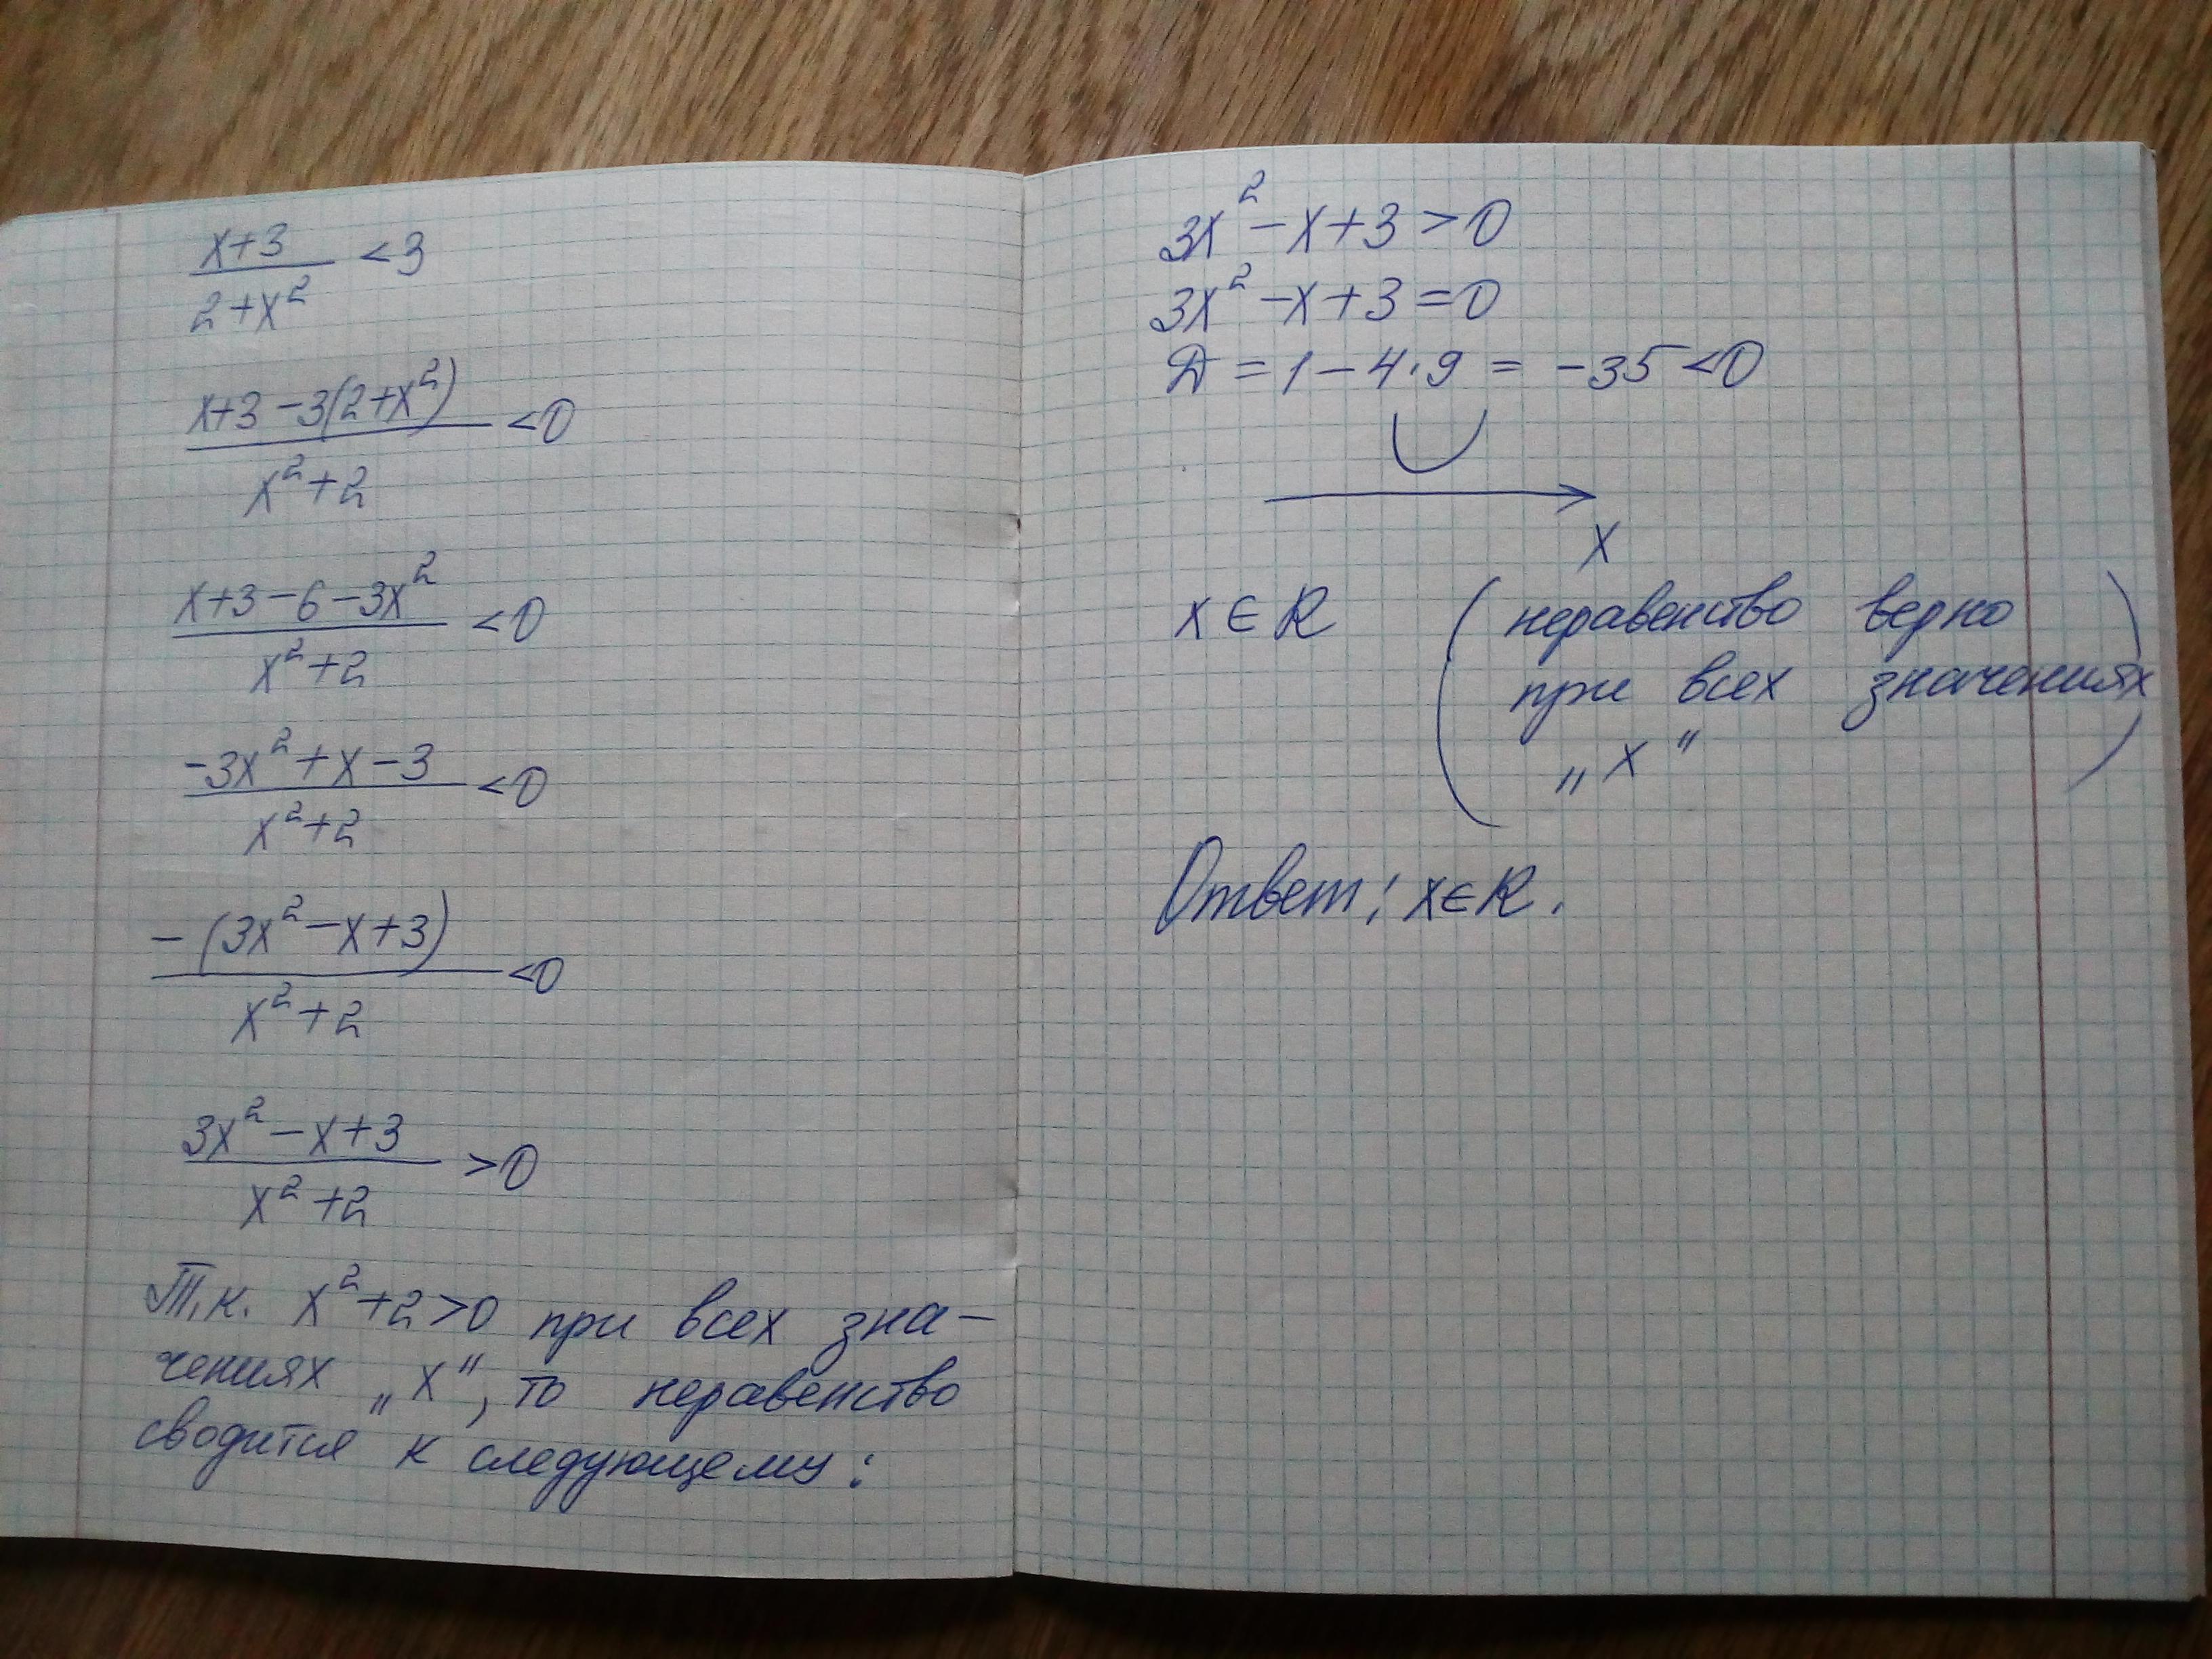 x+3 / 2+x² <3
x+3-3(2+x²) / x²+2 <0
x+3-6-3x² / x²+2 <0
-3x²+x-3 / x²+2 <0
-(3x²-x+3) / x²+2 <0
3x²-x+3 / x²+2 >0
Т.к. x²+2>0 при всех зна-
чениях „x", то неравенство
сводится к следующему:
3x²-x+3>0
3x²-x+3=0
Д=1-4·9=-35<0
x
x∈R (неравенство верно
при всех значениях
„x")
Ответ: x∈R.